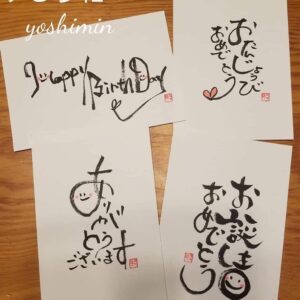 yoshimin
Happy BirthDay
おたんじょうび
おめでとう
ありがとうございます
お誕生日
おめでとう